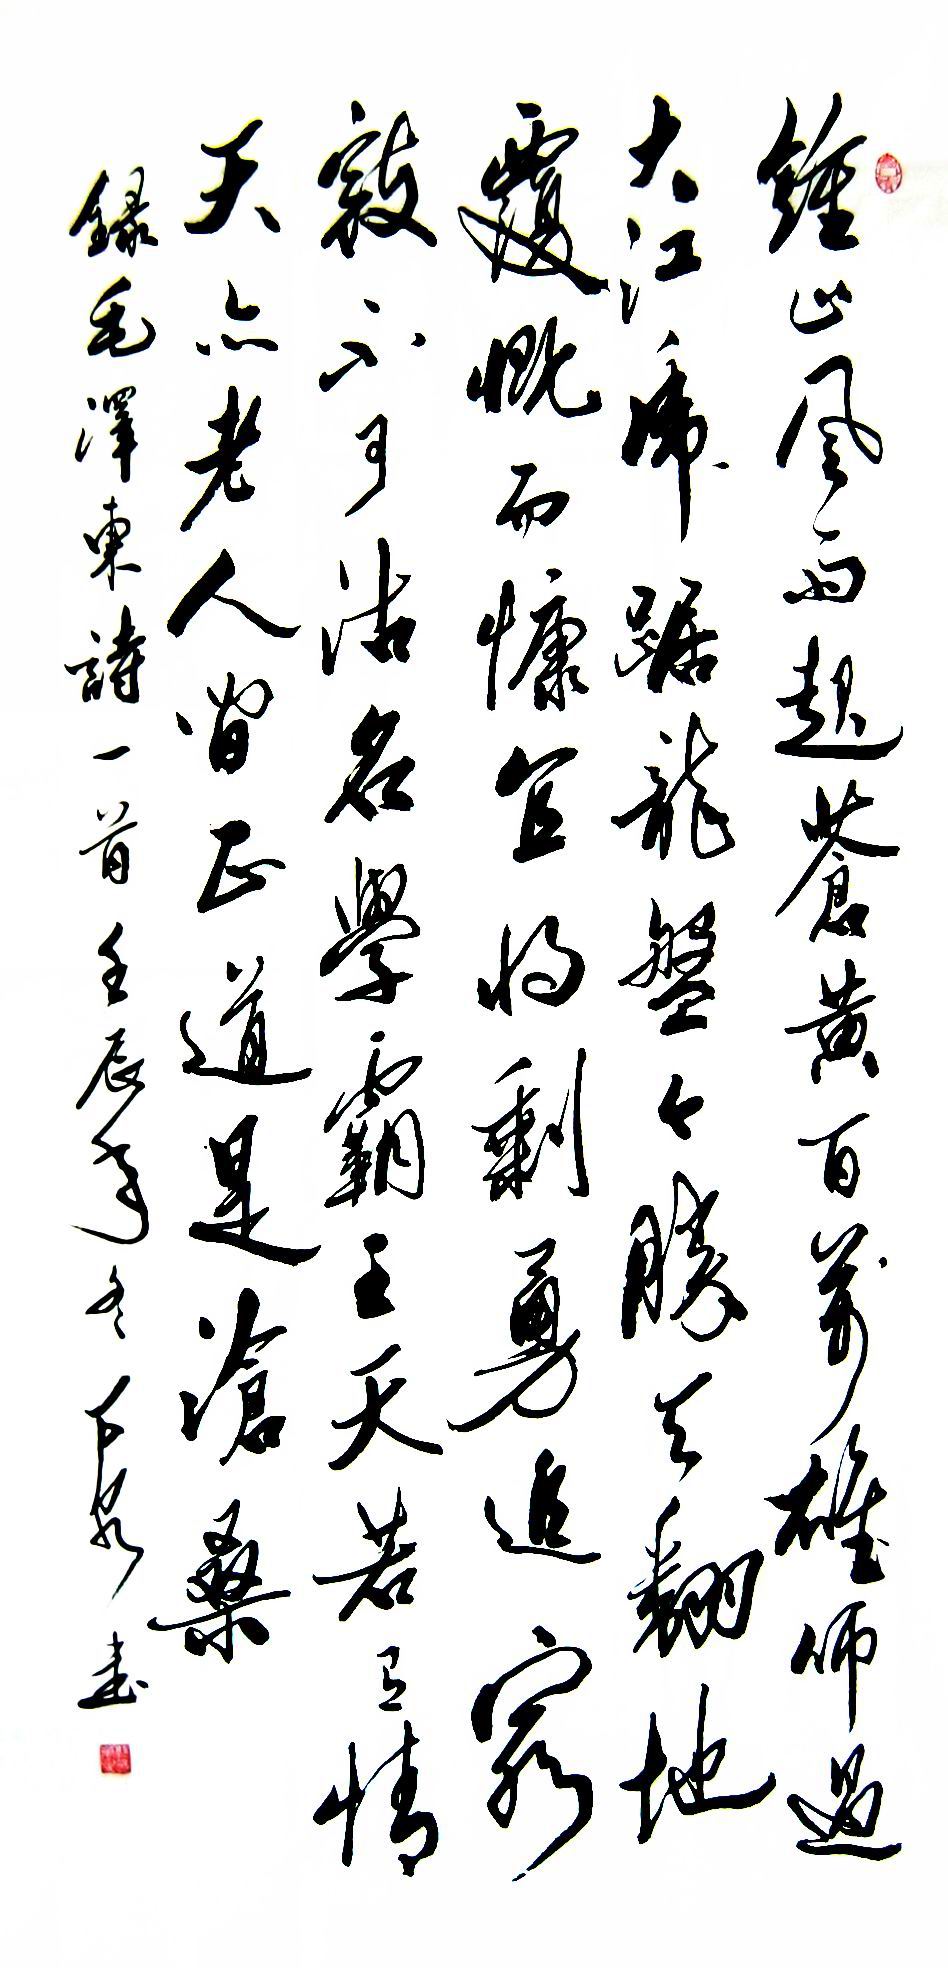 鍾山風雨起蒼黃百萬雄師過
大江虎踞龍盤今勝天翻地
覆慨而慷宜將剩勇追窮
寇不可沽名學霸王天若有情
天亦老人間正道是滄桑
錄毛澤東詩一首壬辰年冬泉書